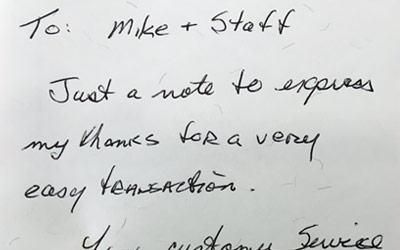 To: Mike + Staff
Just a note to express
my thanks for a very
easy transaction.
Your customer Service